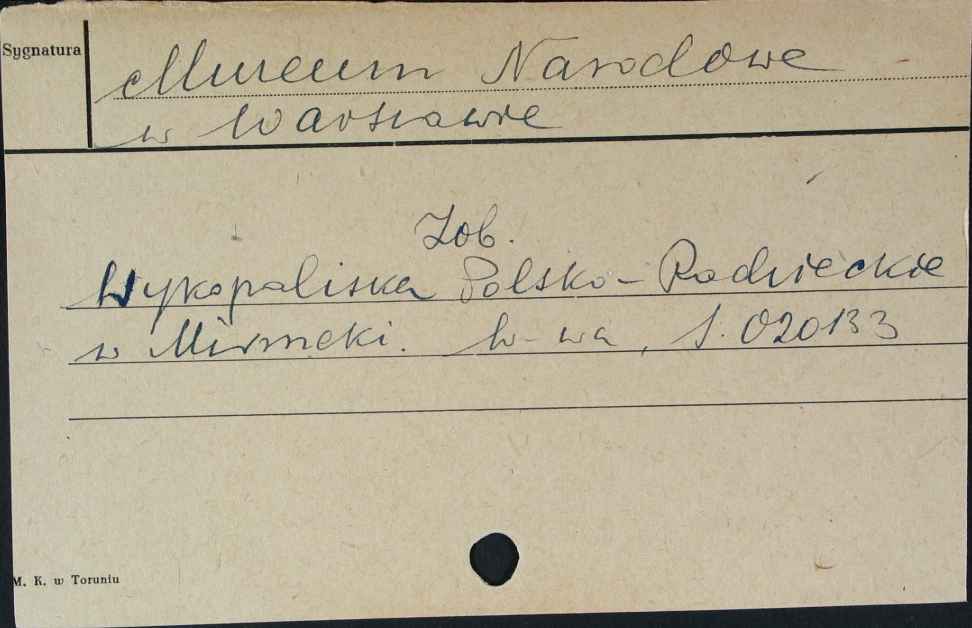 Sygnatura
Muzeum Narodowe
w Warszawie
Zob.
Wykopaliska Polsko-Radzieckie
w Mirmeki. W-wa, S. 020133
M. K. w Toruniu